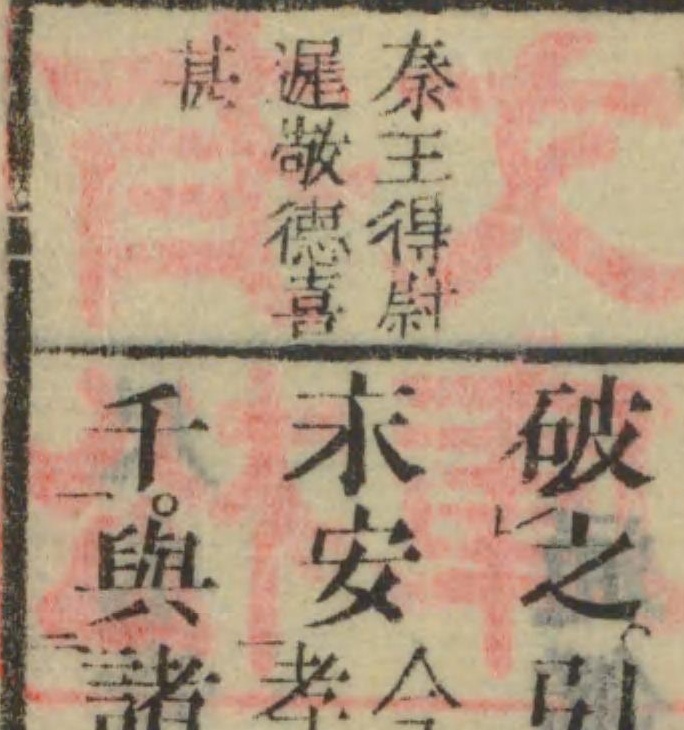 秦王得尉
遲敬德喜
甚
破之引
永安
今
孝
千與諸